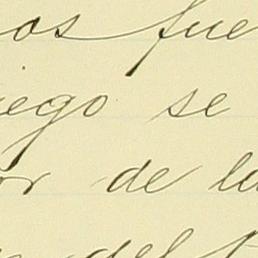 os fue
iego se
or de la
del